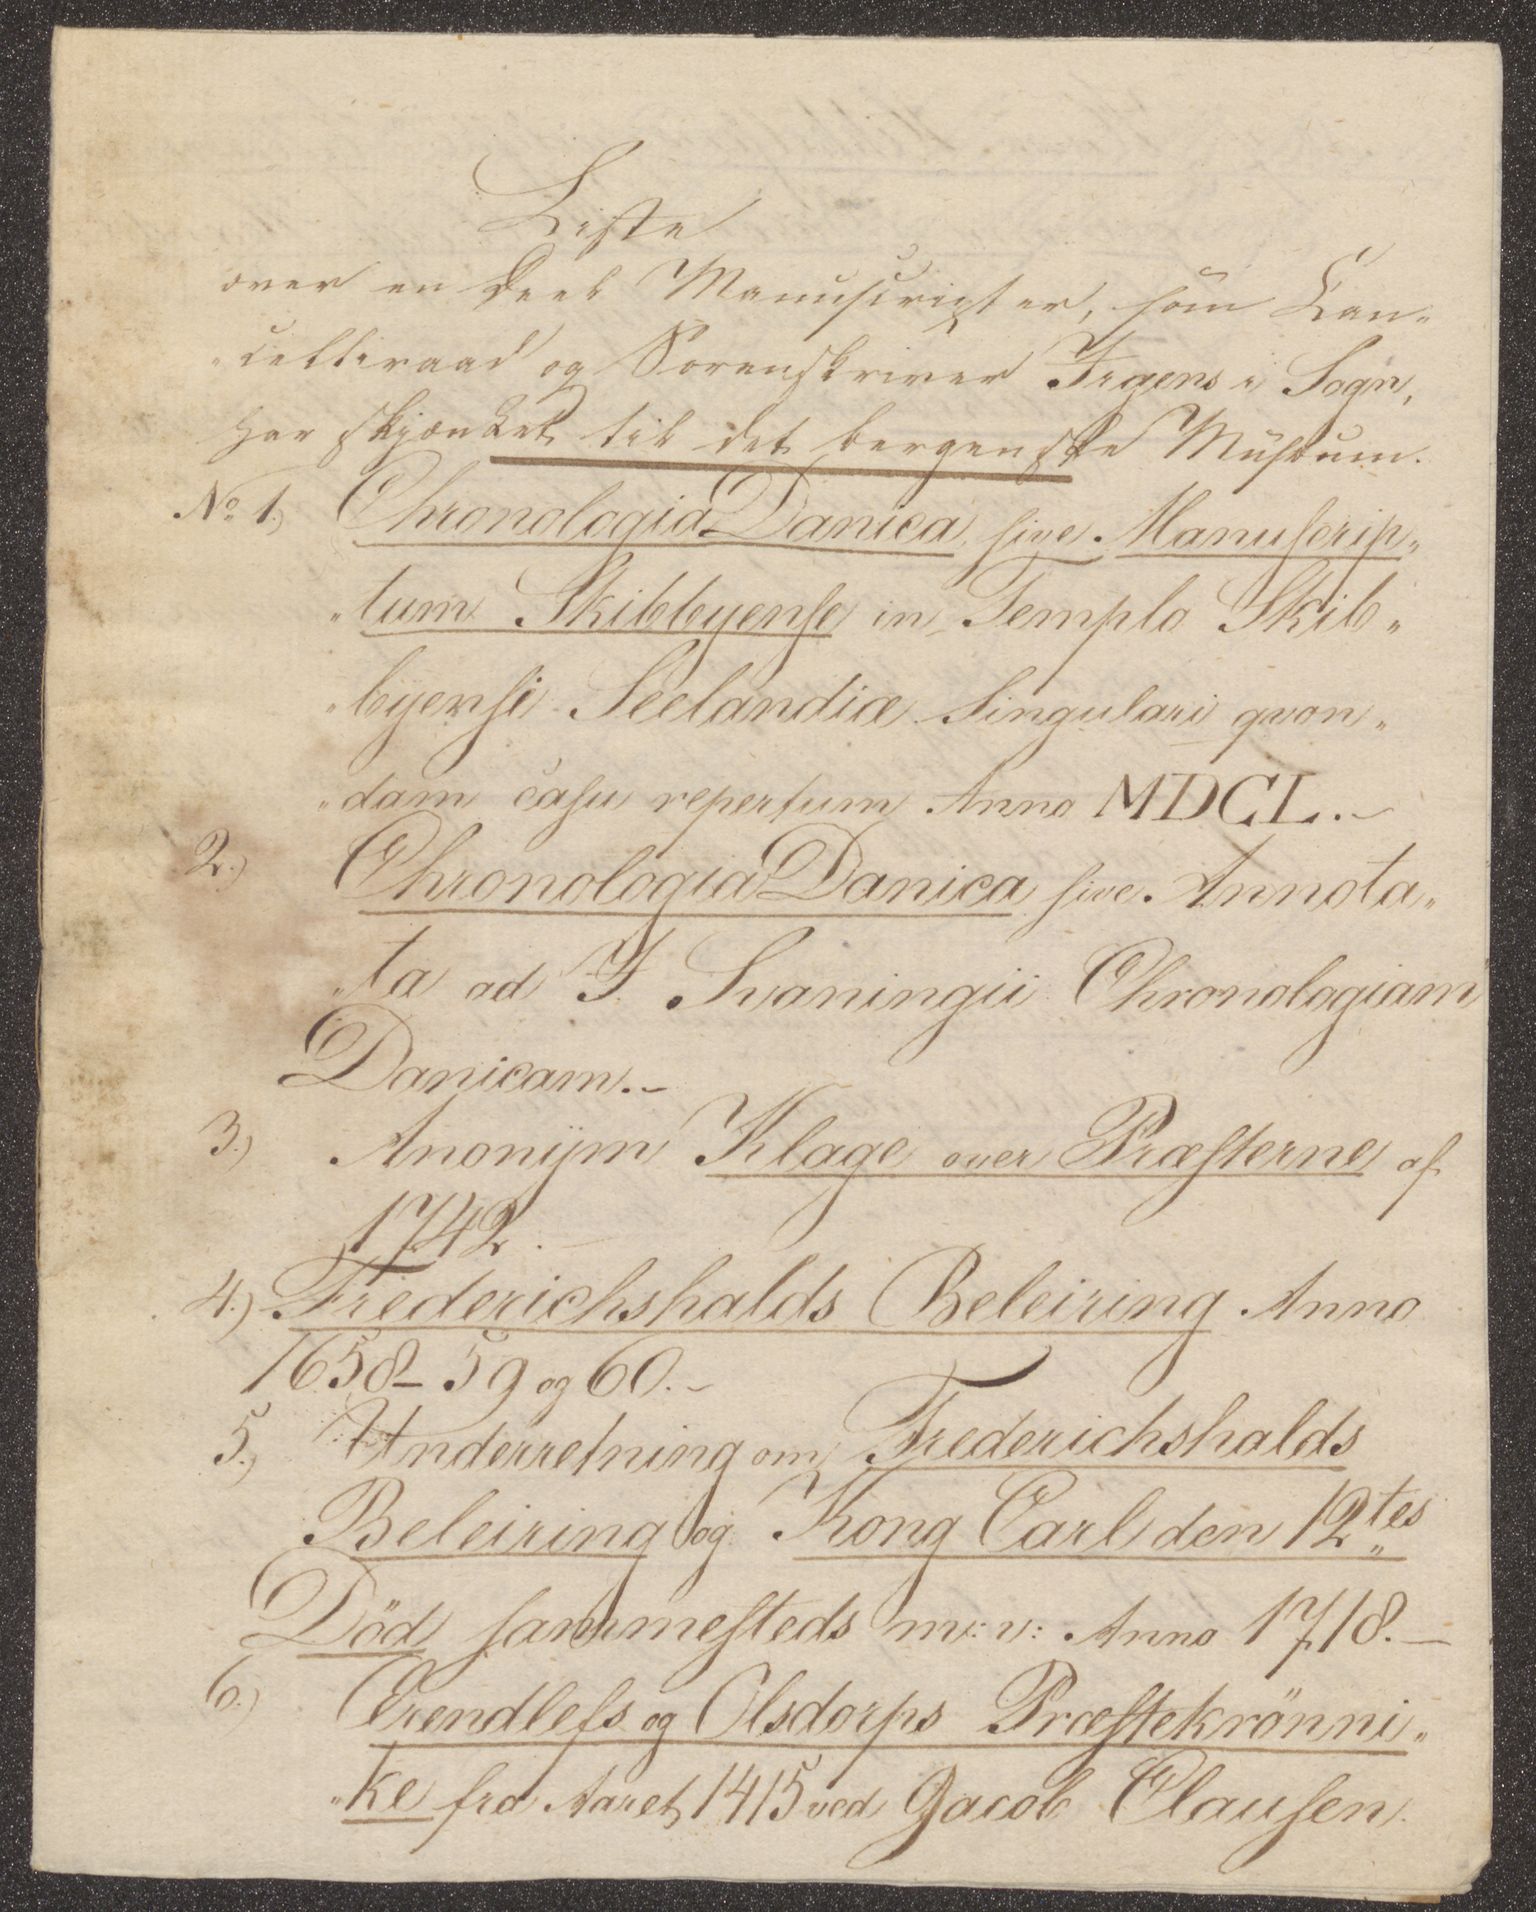 Liste
over en Deel Manuscripter, som Can„
„celliraad og Sorenskriver Irgens i Sogn,
har skjænket til det bergenske Musæum.
No 1.) Chronologia Danica sive Manuscrip„
„tum Skibbyense in Templo Skib„
„byensi Seelandiæ Singulari qvon„
„dam casu repertum Anno MDCL.–
2.) Chronologia Danica sive Annota„
„ta ad I Svaningii Chronologiam
Danicam.–
3.) Anonÿm Klage over Præsterne af
1742.
4.) Friederichshalds Beleiring Anno
1658–59 og 60.–
5.) Underretning om Frederichshalds
Beleiring og Kong Carl den 12tes
Död sammesteds m: v: Anno 1718.–
6.) Erendlefs og Olsdorps Præstekrönni„
„ke fra Aaret 1415 ved Jacob Clausen.